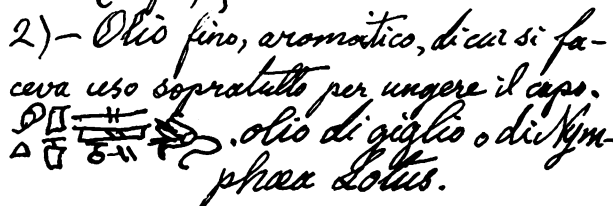 2)- Olio fino, aromatico, di cui si fa-
ceva uso sopratutto per ungere il capo.
. olio di giglio o di Nym-
phaea Lotus.